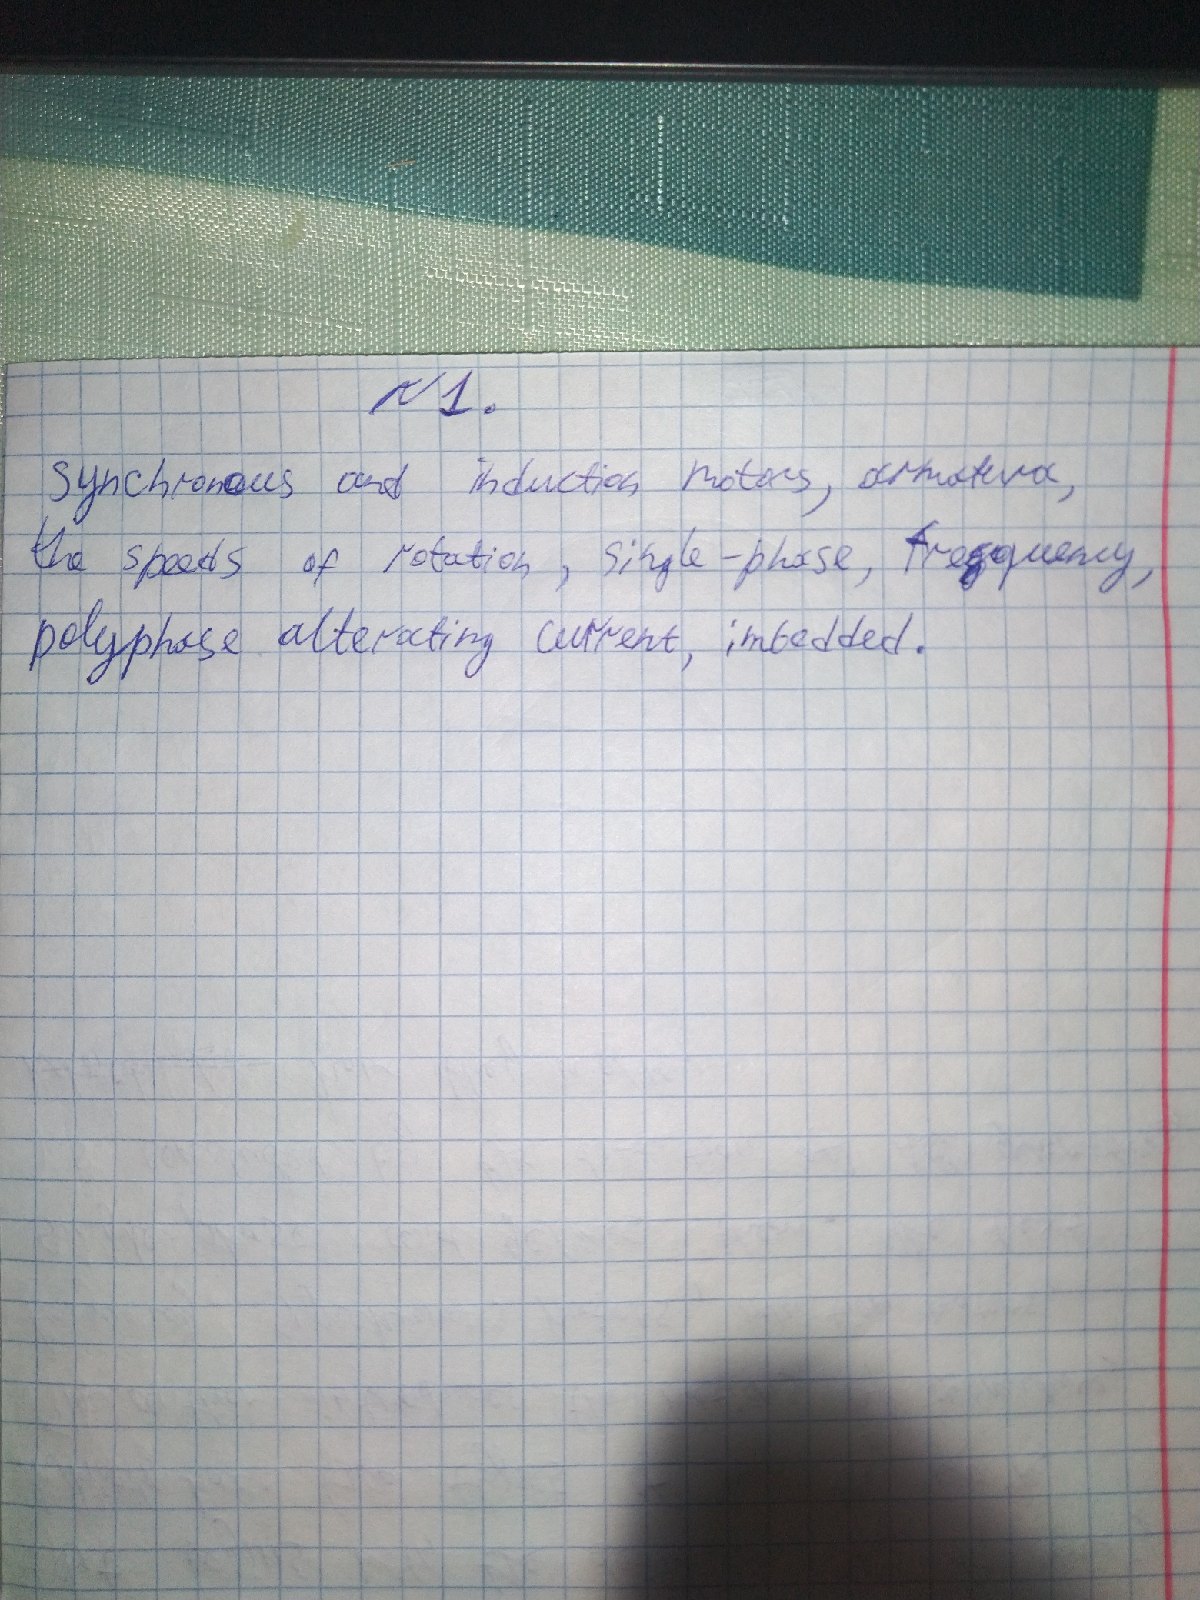 N1.
Synchronous and induction motors, armatura,
the speeds of rotation, single-phase, frequency,
polyphase alterating current, imbedded.